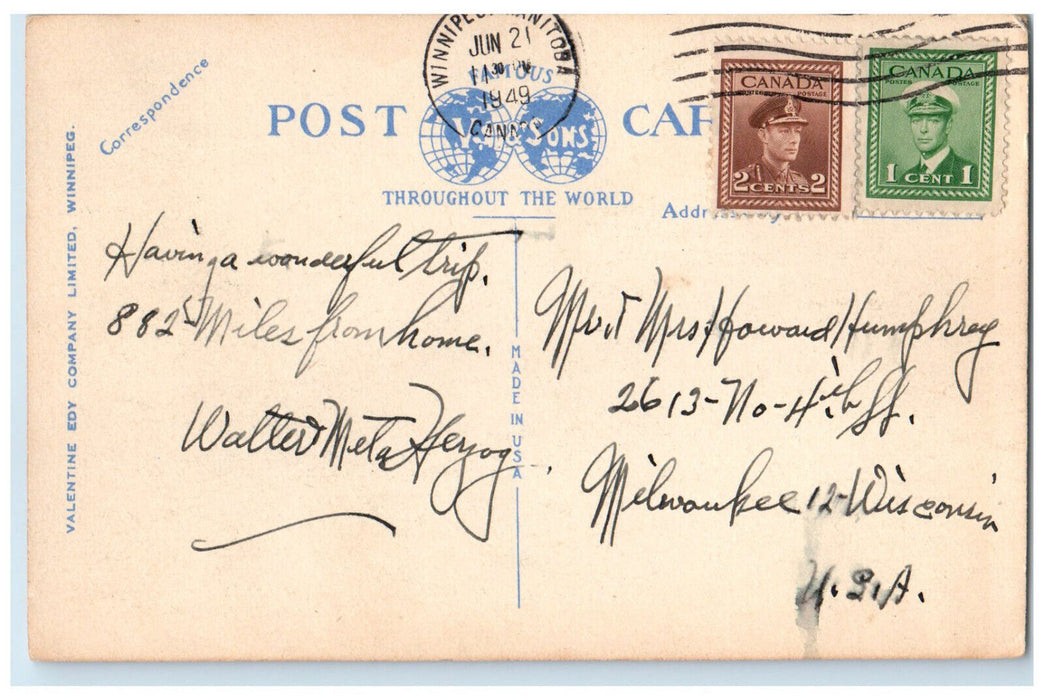 WINNIPEG MANITOBA
JUN 21
11 30 PM
1949
CANADA
Correspondence
FAMOUS
POST CARD
V & SONS
THROUGHOUT THE WORLD
CANADA
POSTES POSTAGE
2 CENTS 2
CANADA
POSTES POSTAGE
1 CENT 1
Address Only
VALENTINE EDY COMPANY LIMITED, WINNIPEG.
MADE IN USA
Having a wonderful trip.
882 Miles from home.
Walter & Meta Herzog
Mr & Mrs Howard Humphrey
2613-No-4th St.
Milwaukee 12-Wisconsin
U.S.A.